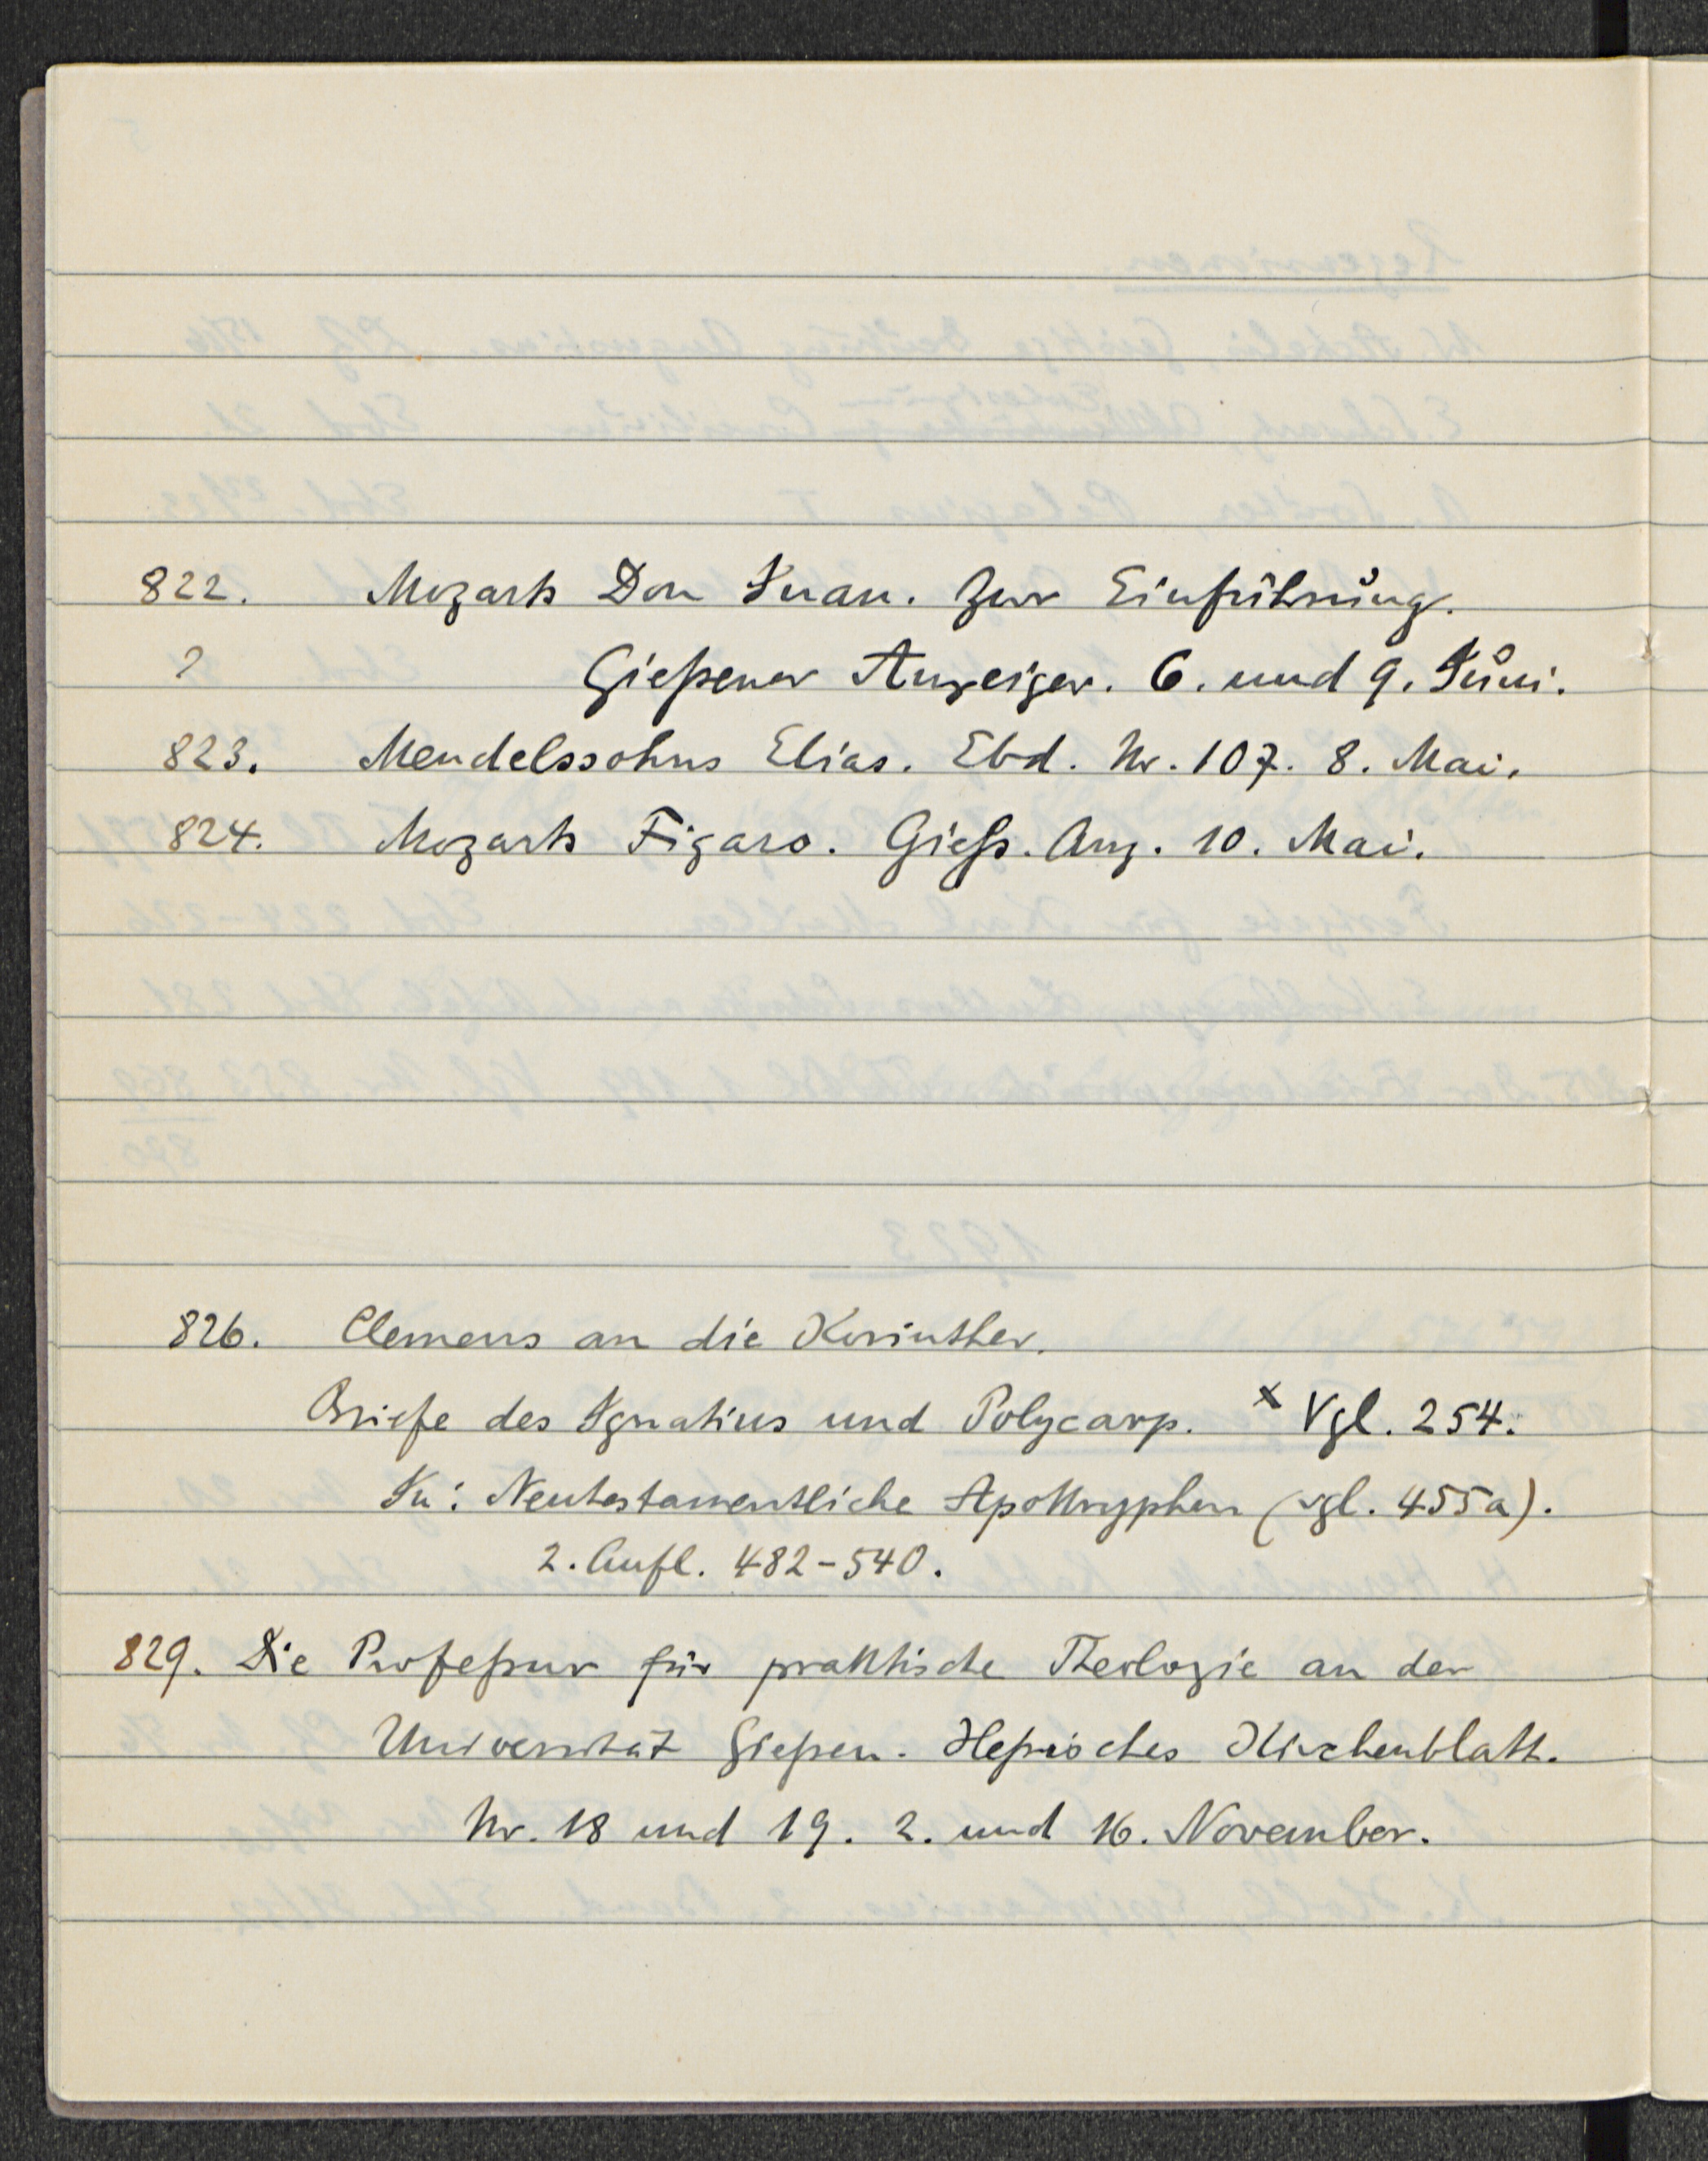 822. Mozarts Don Juan. Zur Einführung.
? Gießener Anzeiger. 6. und 9. Juni.
823. Mendelssohns Elias. Ebd. Nr. 107. 8. Mai.
824. Mozarts Figaro. Gieß. Anz. 10. Mai.
826. Clemens an die Korinther.
Briefe des Ignatius und Polycarp. x Vgl. 254.
In: Neutestamentliche Apokryphen (vgl. 455a).
2. Aufl. 482-540.
829. Die Profeßur für praktische Theologie an der
Universität Gießen. Heßisches Kirchenblatt.
Nr. 18 und 19. 2. und 16. November.